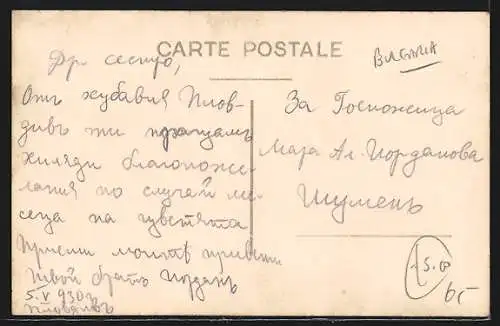 CARTE POSTALE
BULGARIA
Др. сестро,
Отъ хубавия Плов-
дивъ ти пращамъ
хиляди благопоже-
лания по случай ме-
сеца на цветята
Приеми моитѣ привети
Твой братъ Йорданъ
5. V 930
Пловдивъ
За Госпожица
Мара Ал. Йорданова
Шуменъ